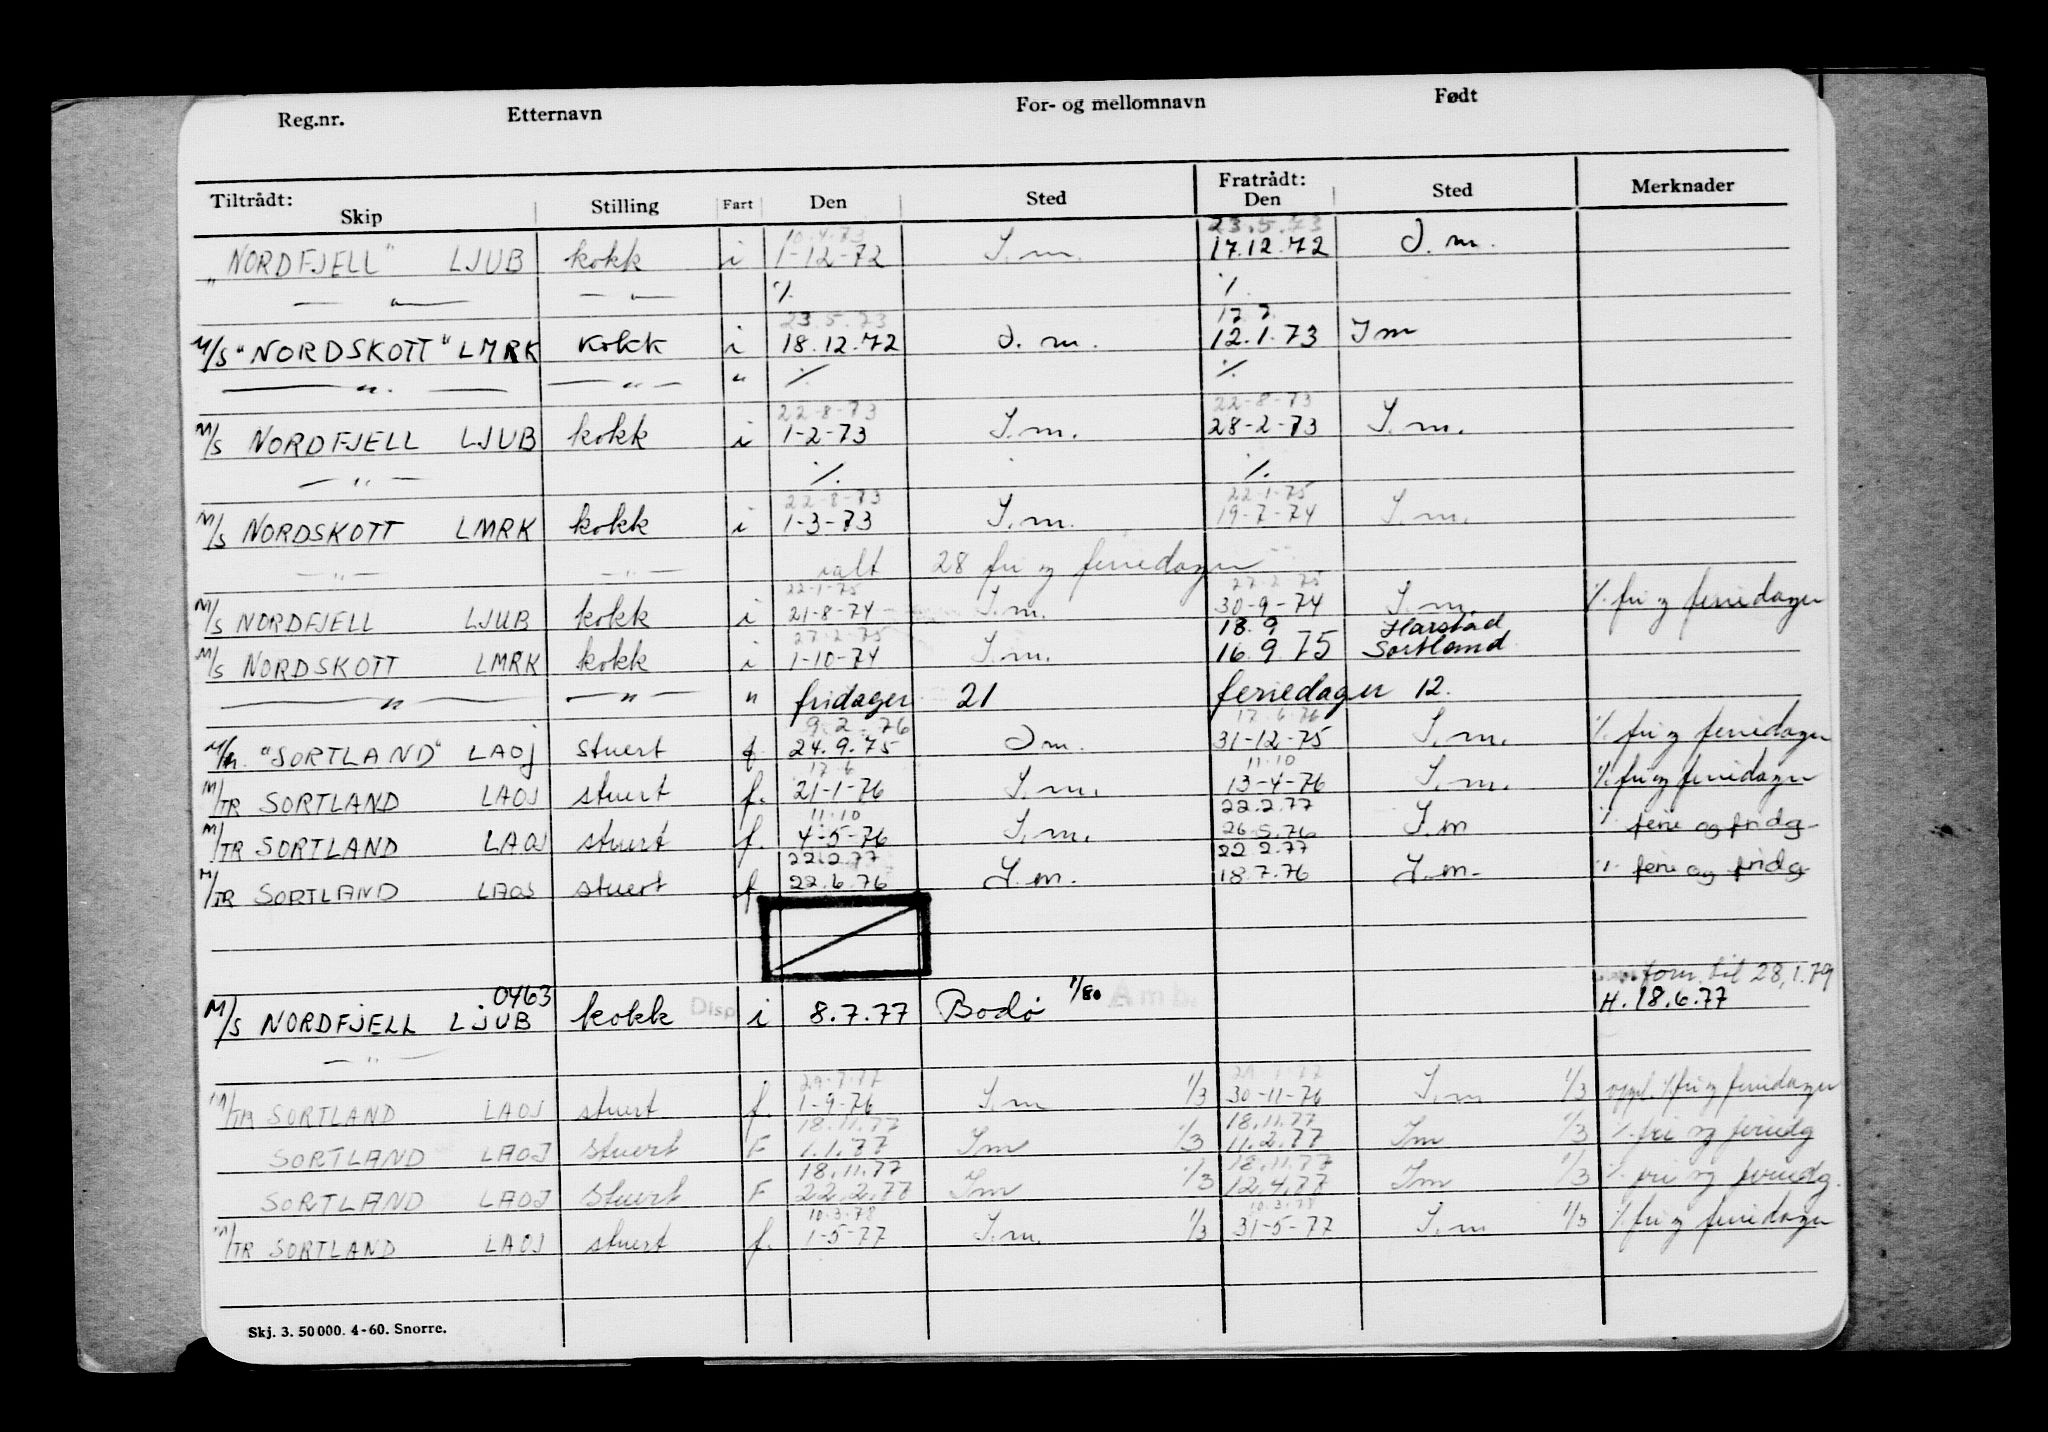 Reg.nr. Etternavn For- og mellomnavn Født
Tiltrådt: Skip Stilling Fart Den Sted Fratrådt: Den Sted Merknader
10.4.73 23.5.73
"NORDFJELL" LJUB kokk i 1-12-72 I.m. 17.12.72 I.m.
— " — — " — % %
23.5.73 17.7.
M/S "NORDSKOTT" LMRK kokk i 18.12.72 I.m. 12.1.73 Im
— " — — " — " % %
22-8-73 22-8-73
M/S NORDFJELL LJUB kokk i 1-2-73 I.m. 28-2-73 I.m.
— " — % %
22-8-73 22-1-75
M/S NORDSKOTT LMRK kokk i 1-3-73 I.m. 19-7-74 I.m.
— " — — " — ialt 28 fri og feriedager
22-1-75 27-2-75
M/S NORDFJELL LJUB kokk i 21-8-74 I.m. 30-9-74 I.m. % fri og feriedager
27-2-75 18.9 Harstad
M/S NORDSKOTT LMRK kokk i 1-10-74 I.m. 16.9.75 Sortland
— " — — " — " fridager 21 feriedager 12.
9.2.76 17.6.76
"SORTLAND" LAOJ stuert f. 24.9.75 Im. 31-12-75 I.m. % fri og feriedager
17.6 11.10
M/TR SORTLAND LAOJ stuert f. 21-1-76 I.m. 13-4-76 I.m. % fri og feriedager
11.10 22.2.77
M/TR SORTLAND LAOJ stuert f. 4-5-76 I.m. 26.5.76 I.m % ferie og fridg
22.2.77 22.2.77
M/TR SORTLAND LAOJ stuert f 22.6.76 I.m. 18.7.76 I.m. % ferie og fridg
forn. til 28.1.79
0463 1/80 H. 18.6.77
M/S NORDFJELL LJUB kokk Disp i 8.7.77 Bodø Amb.
— " —
29.7.77 29.7.77
M/TR SORTLAND LAOJ stuert f. 1-9-76 I.m 1/3 30-11-76 I.m 1/3 oppl. % fri og feriedager
18.11.77 18.11.77
SORTLAND LAOJ stuert F 1.1.77 Im 1/3 11.2.77 Im 1/3 % fri og feriedg
18.11.77 18.11.77
SORTLAND LAOJ stuert F 22.2.77 Im 1/3 12.4.77 Im 1/3 % fri og feriedg.
10.3.78 10.3.78
M/TR SORTLAND LAOJ stuert f. 1-5-77 I.m. 1/3 31-5-77 I.m 1/3 % fri og feriedager
Skj. 3. 50000. 4-60. Snorre.